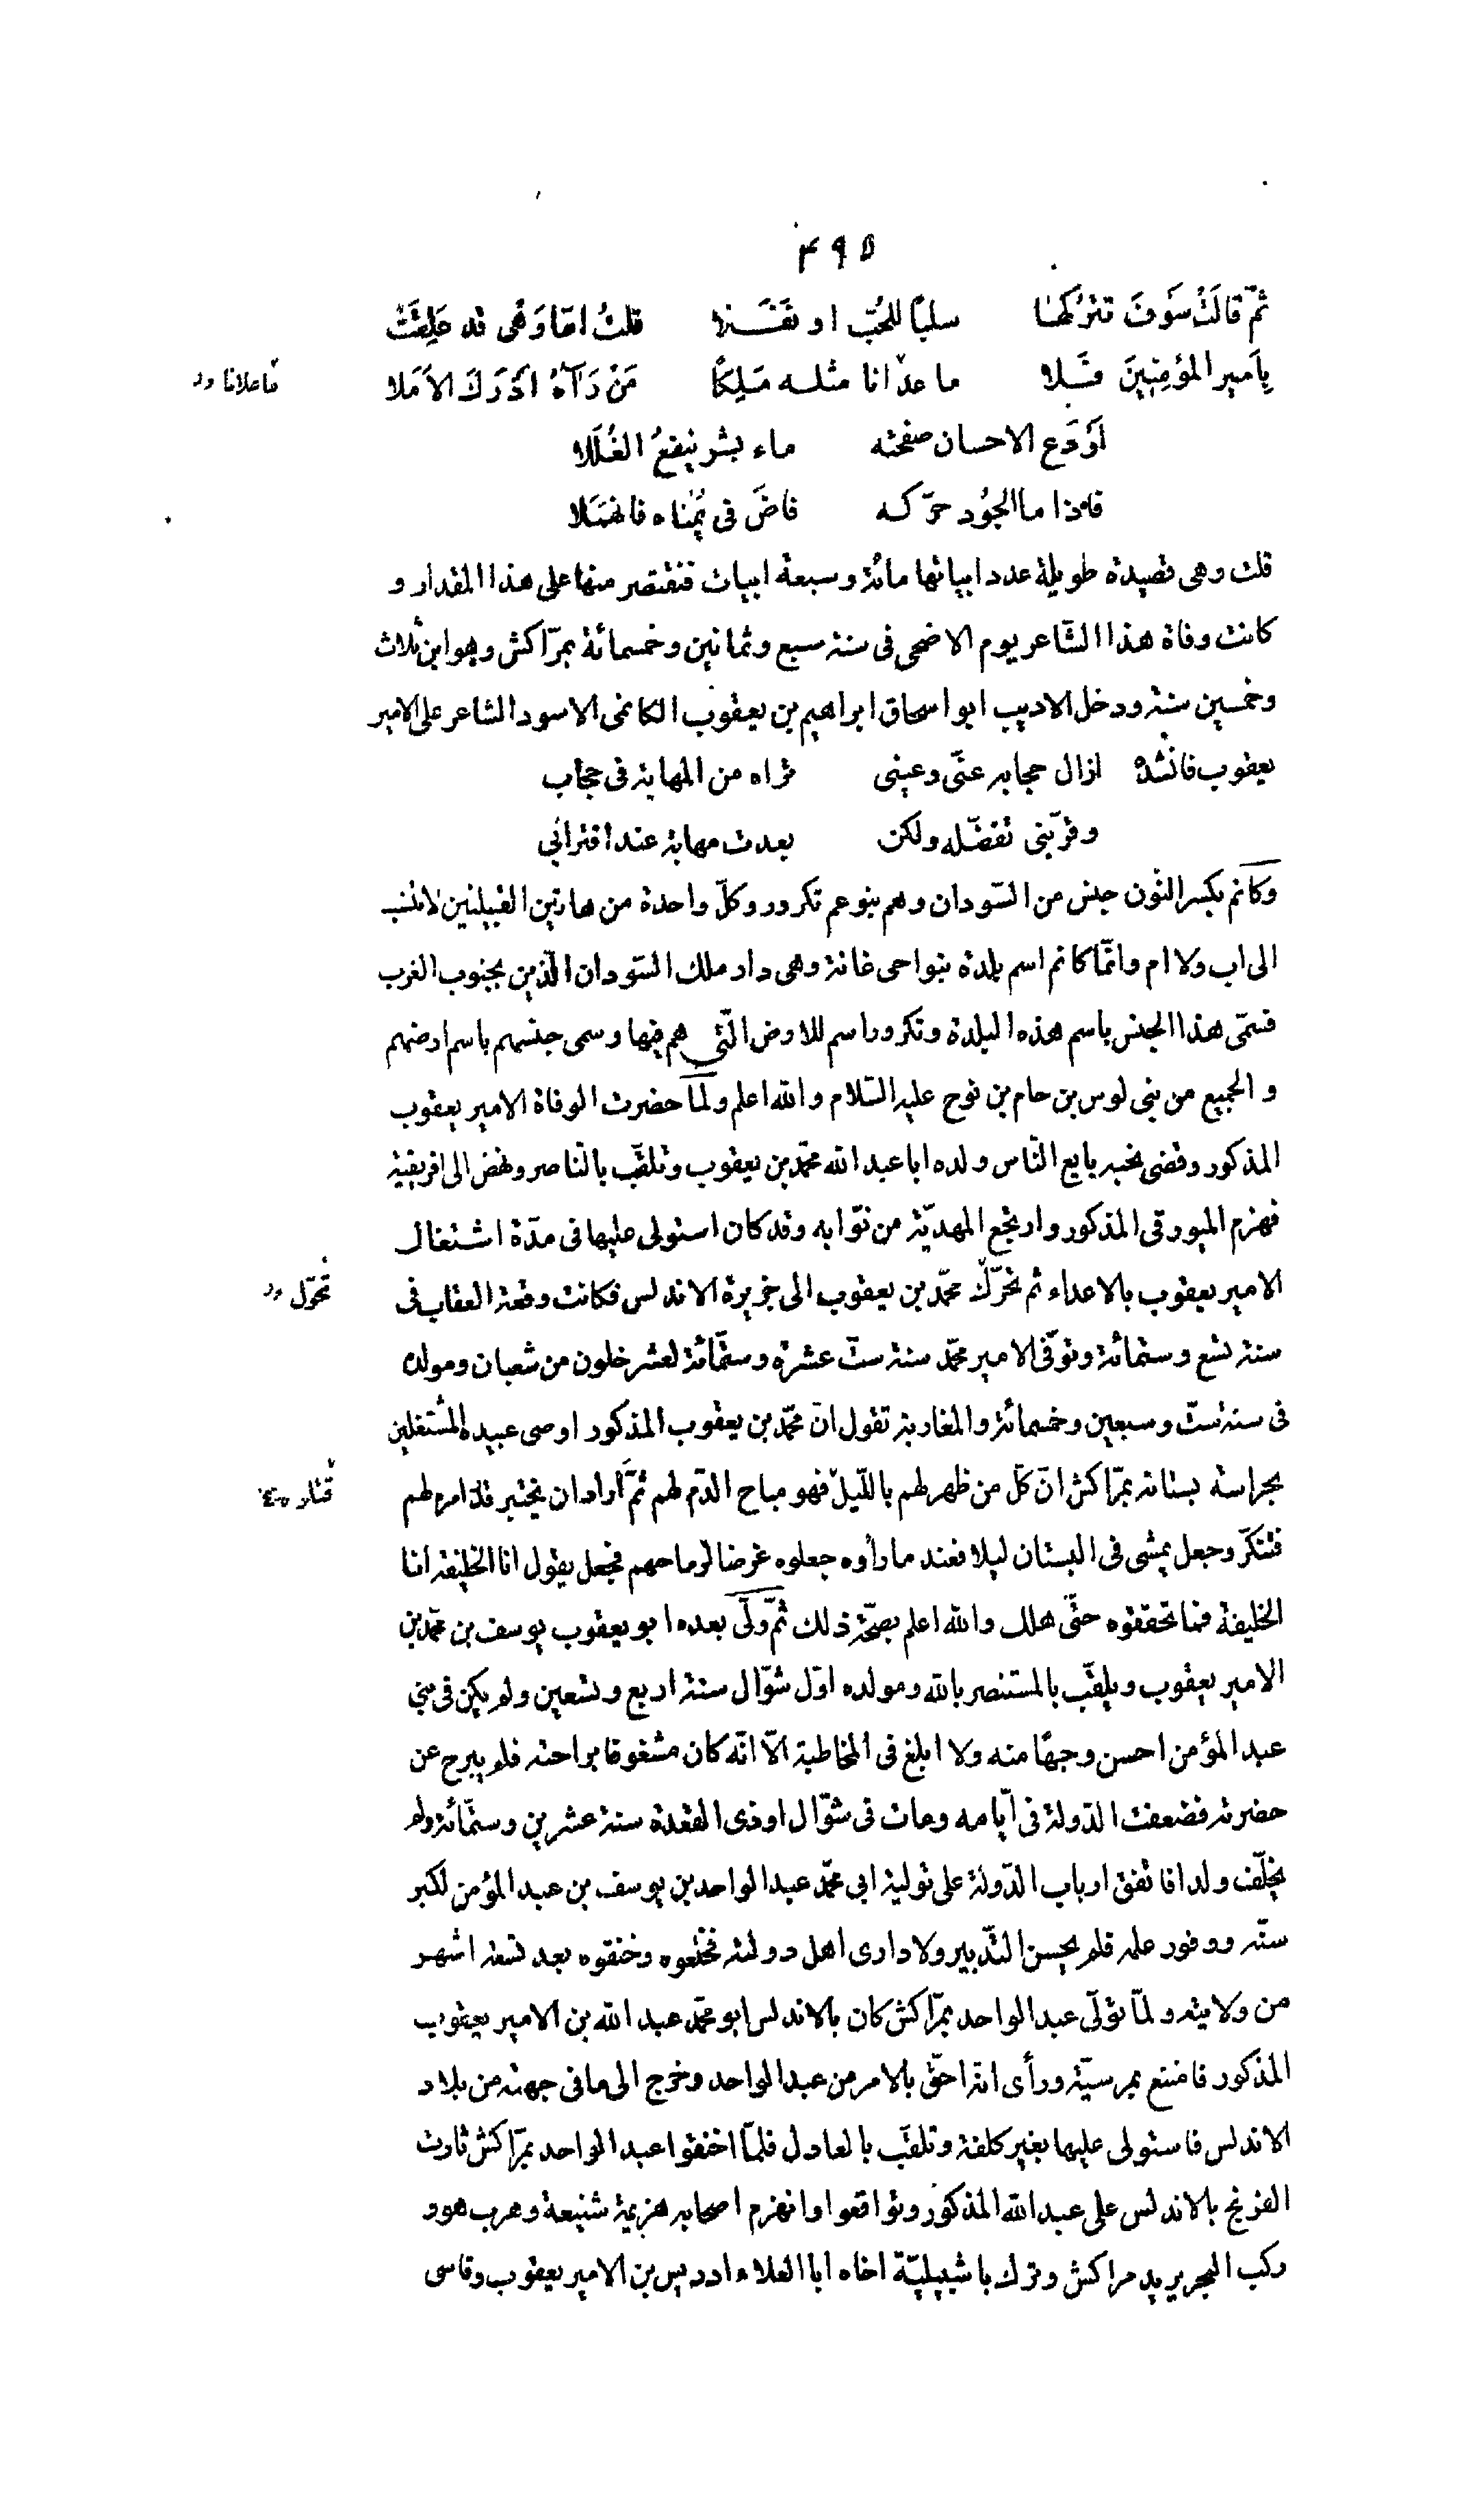 ٤٩٥
ثمّ قالَتْ سَوْفَ تتركها سلبًا للحُبّ او نَفَــلا قلتُ امّا وَهْى قد عَلِقَتْ
بِاَمير المؤمِنينَ فَــلا ما عدا نا مثلــه مَلِكًا مَنْ رَآهُ ادْرَكَ الاَمَلا
ما علانا ور
اَوْدَع الاحسان صفحته ماء بشر ينقعُ الغُلَلا
فاذا ما الجُود حرّكــه فاضَ فى يُمناه فانهمَلا
قلت وهى قصيدة طويلة عدد ابياتها مائة وسبعة ابيات فنقتصر منها على هذا المقدار و
كانت وفاة هذا الشّاعر يوم الاضحى فى سنة سبع وثمانين وخمسمائة بمرّاكش وهو ابن ثلاث
وخمسين سنة ودخل الاديب ابو اسحاق ابراهيم بن يعقوب الكانمى الاسود الشاعر على الامير
يعقوب فانشده ازال حجابه عنّى وعينى تراه من المهابة فى حجاب
وقرّبنى تفضّله ولكن بعدت مهابة عند اقترابى
وكانم بكسر النّون جنس من السّودان وهم بنو عم تكرور وكلّ واحدة من هاتين القبيلتين لا تنسب
الى اب ولا ام وانّما كانم اسم بلدة بنواحى غانة وهى دار ملك السّودان الّذين بجنوب الغرب
فسمّى هذا الجنس باسم هذه البلدة وتكرور اسم للارض الّتى هم فيها وسمى جنسهم باسم ارضهم
والجميع من بنى لوس بن حام بن نوح عليه السّلام والله اعلم ولمّا حضرت الوفاة الامير يعقوب
المذكور وقضى نحبه بايع النّاس ولده ابا عبد الله محمّد بن يعقوب وتلقّب بالنّاصر ونهض الى افريقية
فهزم الميورقى المذكور وارتجع المهديّة من نوّابه وقد كان استولى عليها فى مدّة اشتغال
الامير يعقوب بالاعداء ثم تحرّك محمّد بن يعقوب الى جزيرة الاندلس فكانت وقعة العقاب فى
تحوّل ور
سنة تسع وستمائة وتوفّى الامير محمّد سنة ستّ عشرة وستّمائة لعشر خلون من شعبان ومولده
فى سنة ستّ وسبعين وخمسمائة والمغاربة تقول انّ محمّد بن يعقوب المذكور اوصى عبيده المشتغلين
بحراسة بستانه بمرّاكش انّ كلّ من ظهر لهم باللّيل فهو مباح الدّم لهم ثمّ أراد ان يختبر قدر امره لهم
فتنكّر وجعل يمشى فى البستان ليلا فعند ما رأوه جعلوه غرضا لرماحهم فجعل يقول انا الخليفة انا
الخليفة فما تحققوه حتّى هلك والله اعلم بصحّة ذلك ثمّ ولّى بعده ابو يعقوب يوسف بن محمّد بن
الامير يعقوب ويلقّب بالمستنصر بالله ومولده اوّل شوّال سنة اربع وتسعين ولم يكن فى بنى
عبد المؤمن احسن وجهًا منه ولا ابلغ فى المخاطبة الّا انّه كان مشغوفا براحته فلم يبرح عن
حضرته فضعفت الدّولة فى ايّامه ومات فى شوّال او ذى القعدة سنة عشرين وستّمائة ولم
يخلّف ولدا فاتفق ارباب الدّولة على تولية ابى محمّد عبد الواحد بن يوسف بن عبد المؤمن لكبر
سنّه ووفور علمه فلم يحسن التّدبير ولا دارى اهل دولته فخلعوه وخنقوه بعد تسعة اشهر
من ولايته ولمّا تولّى عبد الواحد بمرّاكش كان بالاندلس ابو محمّد عبد الله بن الامير يعقوب
المذكور فامتنع بمرسيّة ورأى انّه احقّ بالامر من عبد الواحد وخرج الى ما فى جهته من بلاد
الاندلس فاستولى عليها بغير كلفة وتلقّب بالعادل فلمّا اخنقوا عبد الواحد بمرّاكش ثارت
الفرنج بالاندلس على عبد الله المذكور وتواقعوا وانهزم اصحابه هزيمة شنيعة وهرب هو و
ركب البحر يريد مراكش وترك باشبيليّة اخاه ابا العلاء ادريس بن الامير يعقوب وقاسى